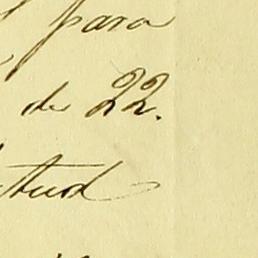 para
de 22.
tud